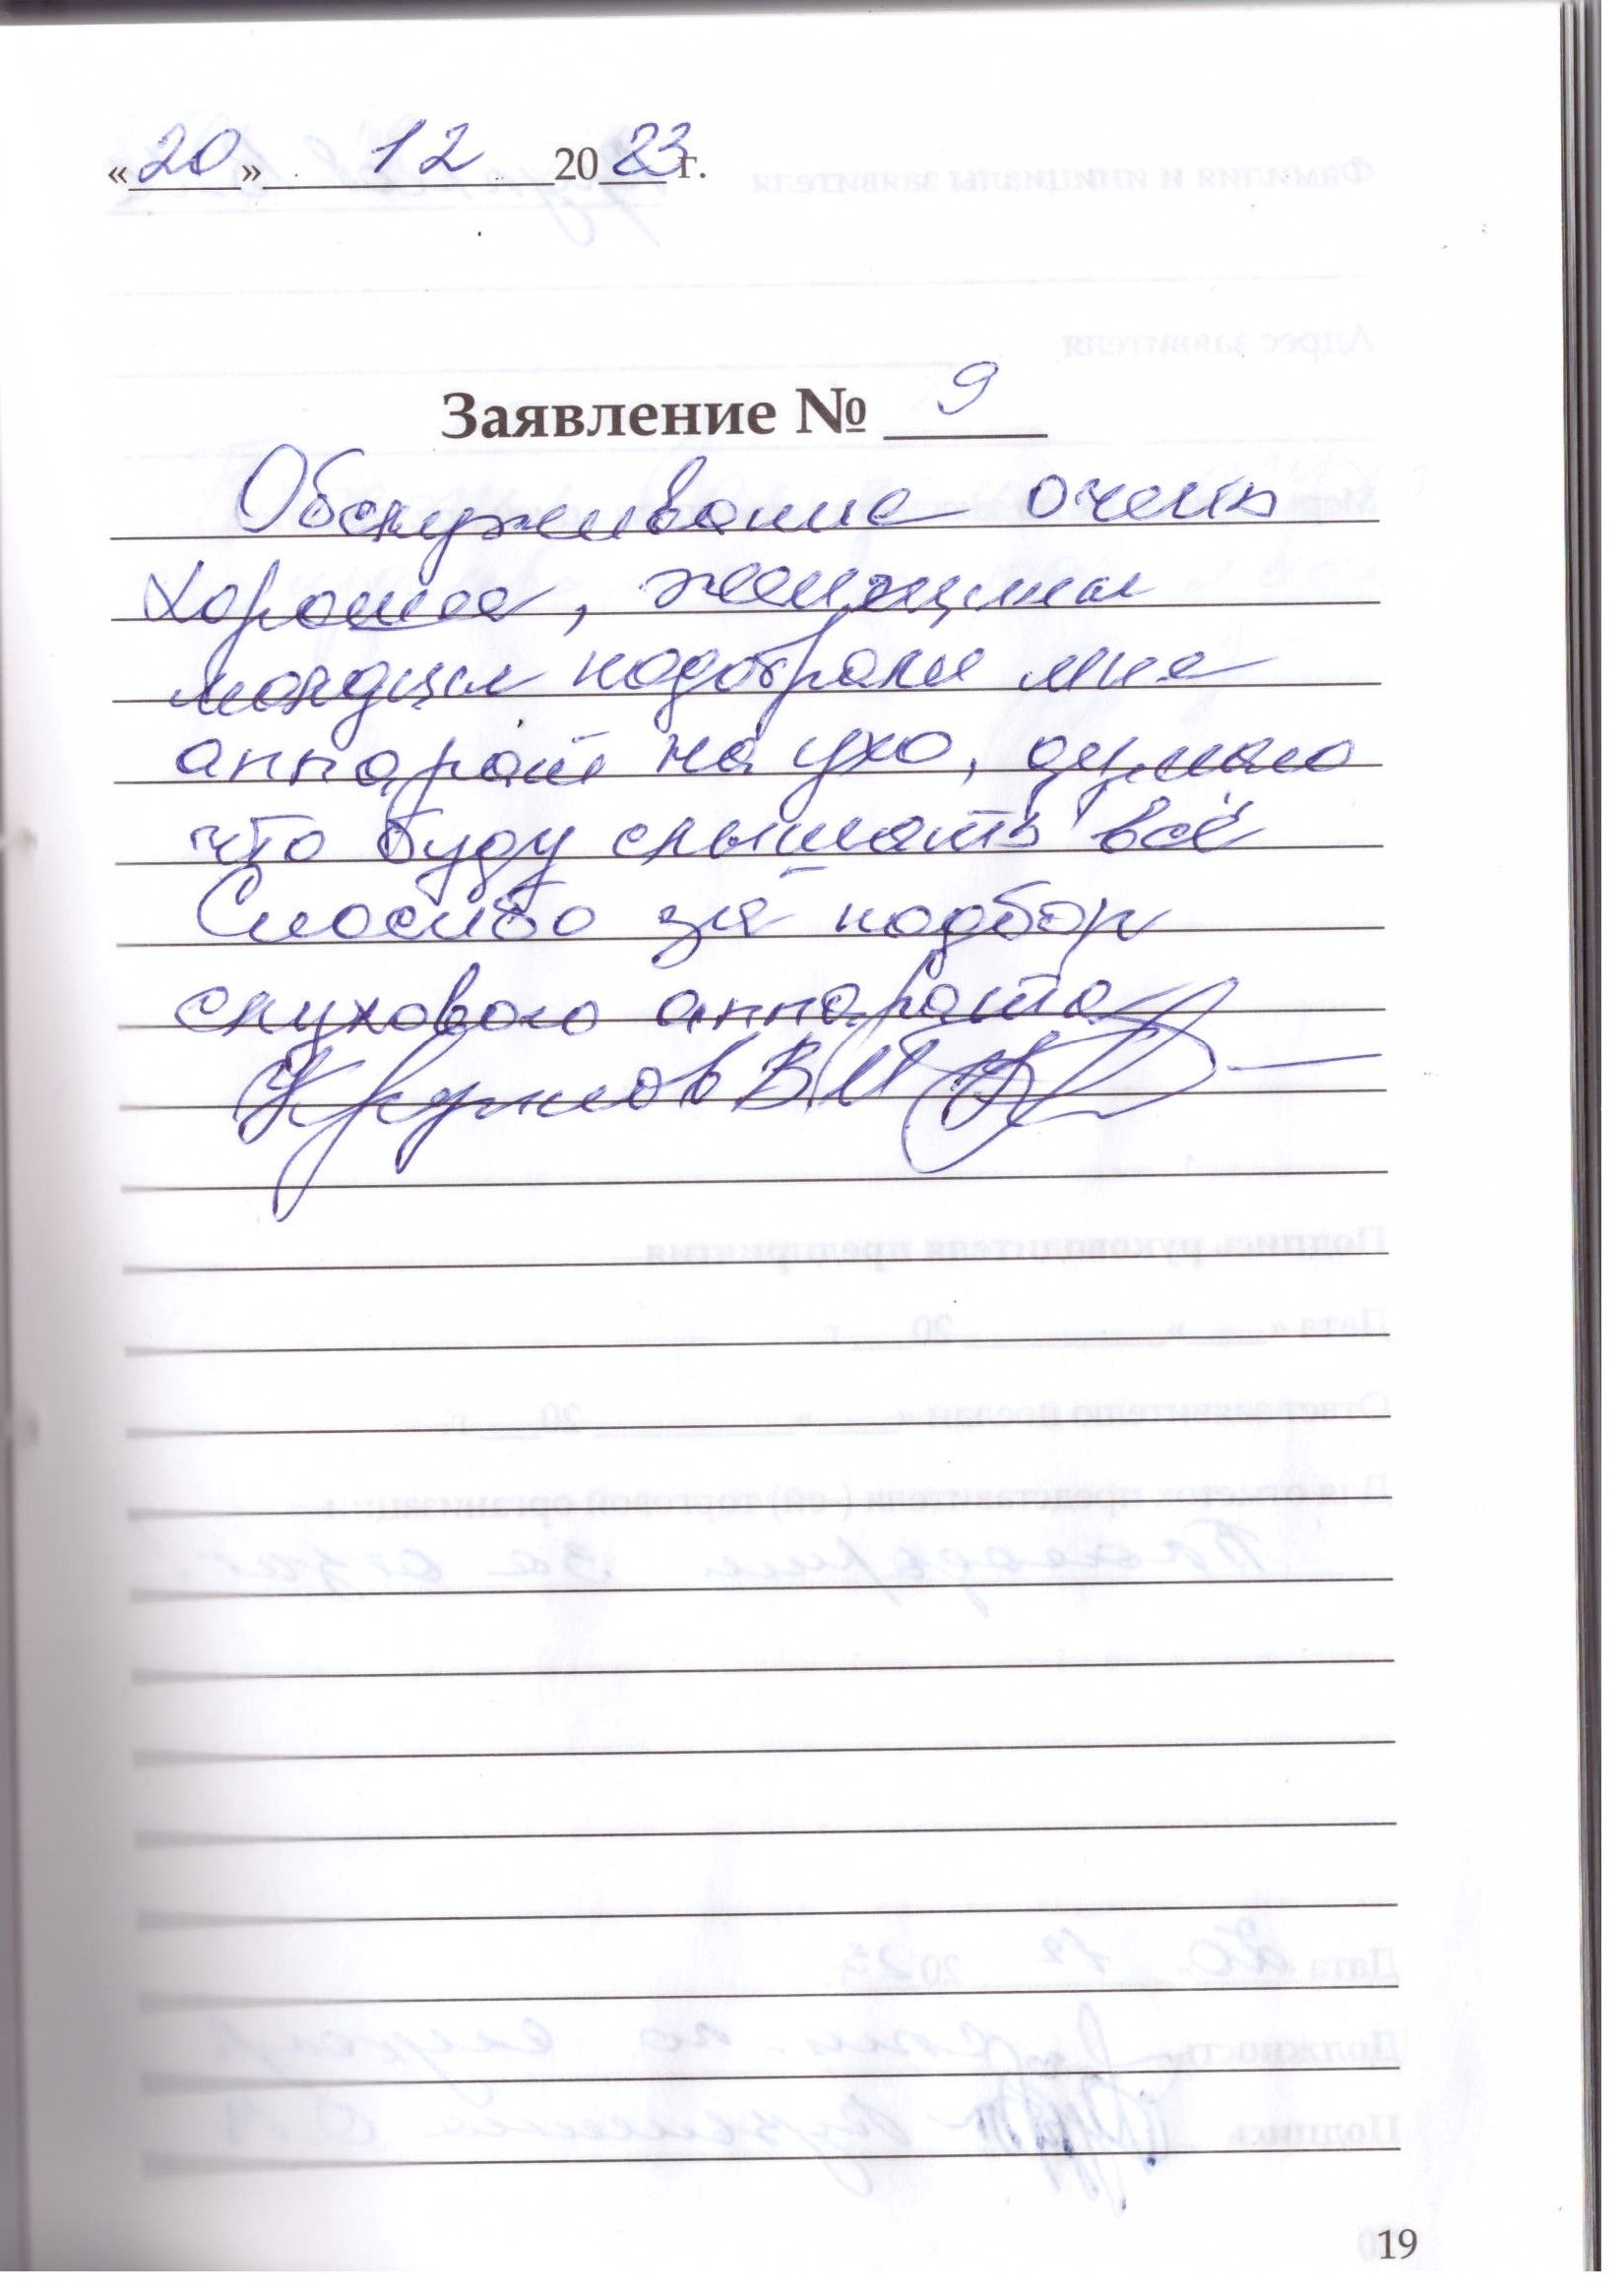 «20» 12 2023г.
Заявление № 9
Обслуживание очень
хорошее, женщины
молодцы подобрали мне
аппарат на ухо, думаю
что буду слышать всё
Спасибо за подбор
слухового аппарата
В.И
19